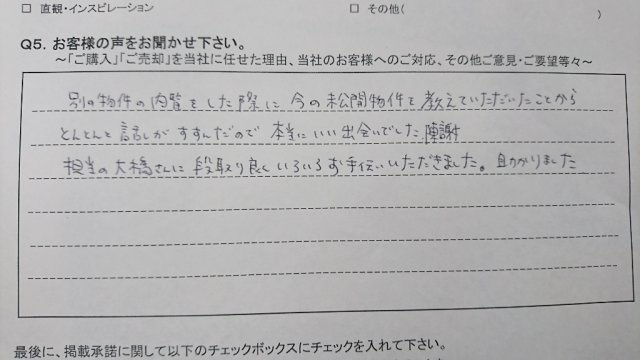 □ 直観・インスピレーション　□ その他(　)
Q5．お客様の声をお聞かせ下さい。
～「ご購入」「ご売却」を当社に任せた理由、当社のお客様へのご対応、その他ご意見・ご要望等々～
別の物件の内覧をした際に 今の未公開物件を 教えていただいたことから
とんとんと話しがすすんだので 本当にいい出会いでした 陳謝
担当の大橋さんに 段取り良く いろいろお手伝いいただきました。助かりました
最後に、掲載承諾に関して以下のチェックボックスにチェックを入れて下さい。